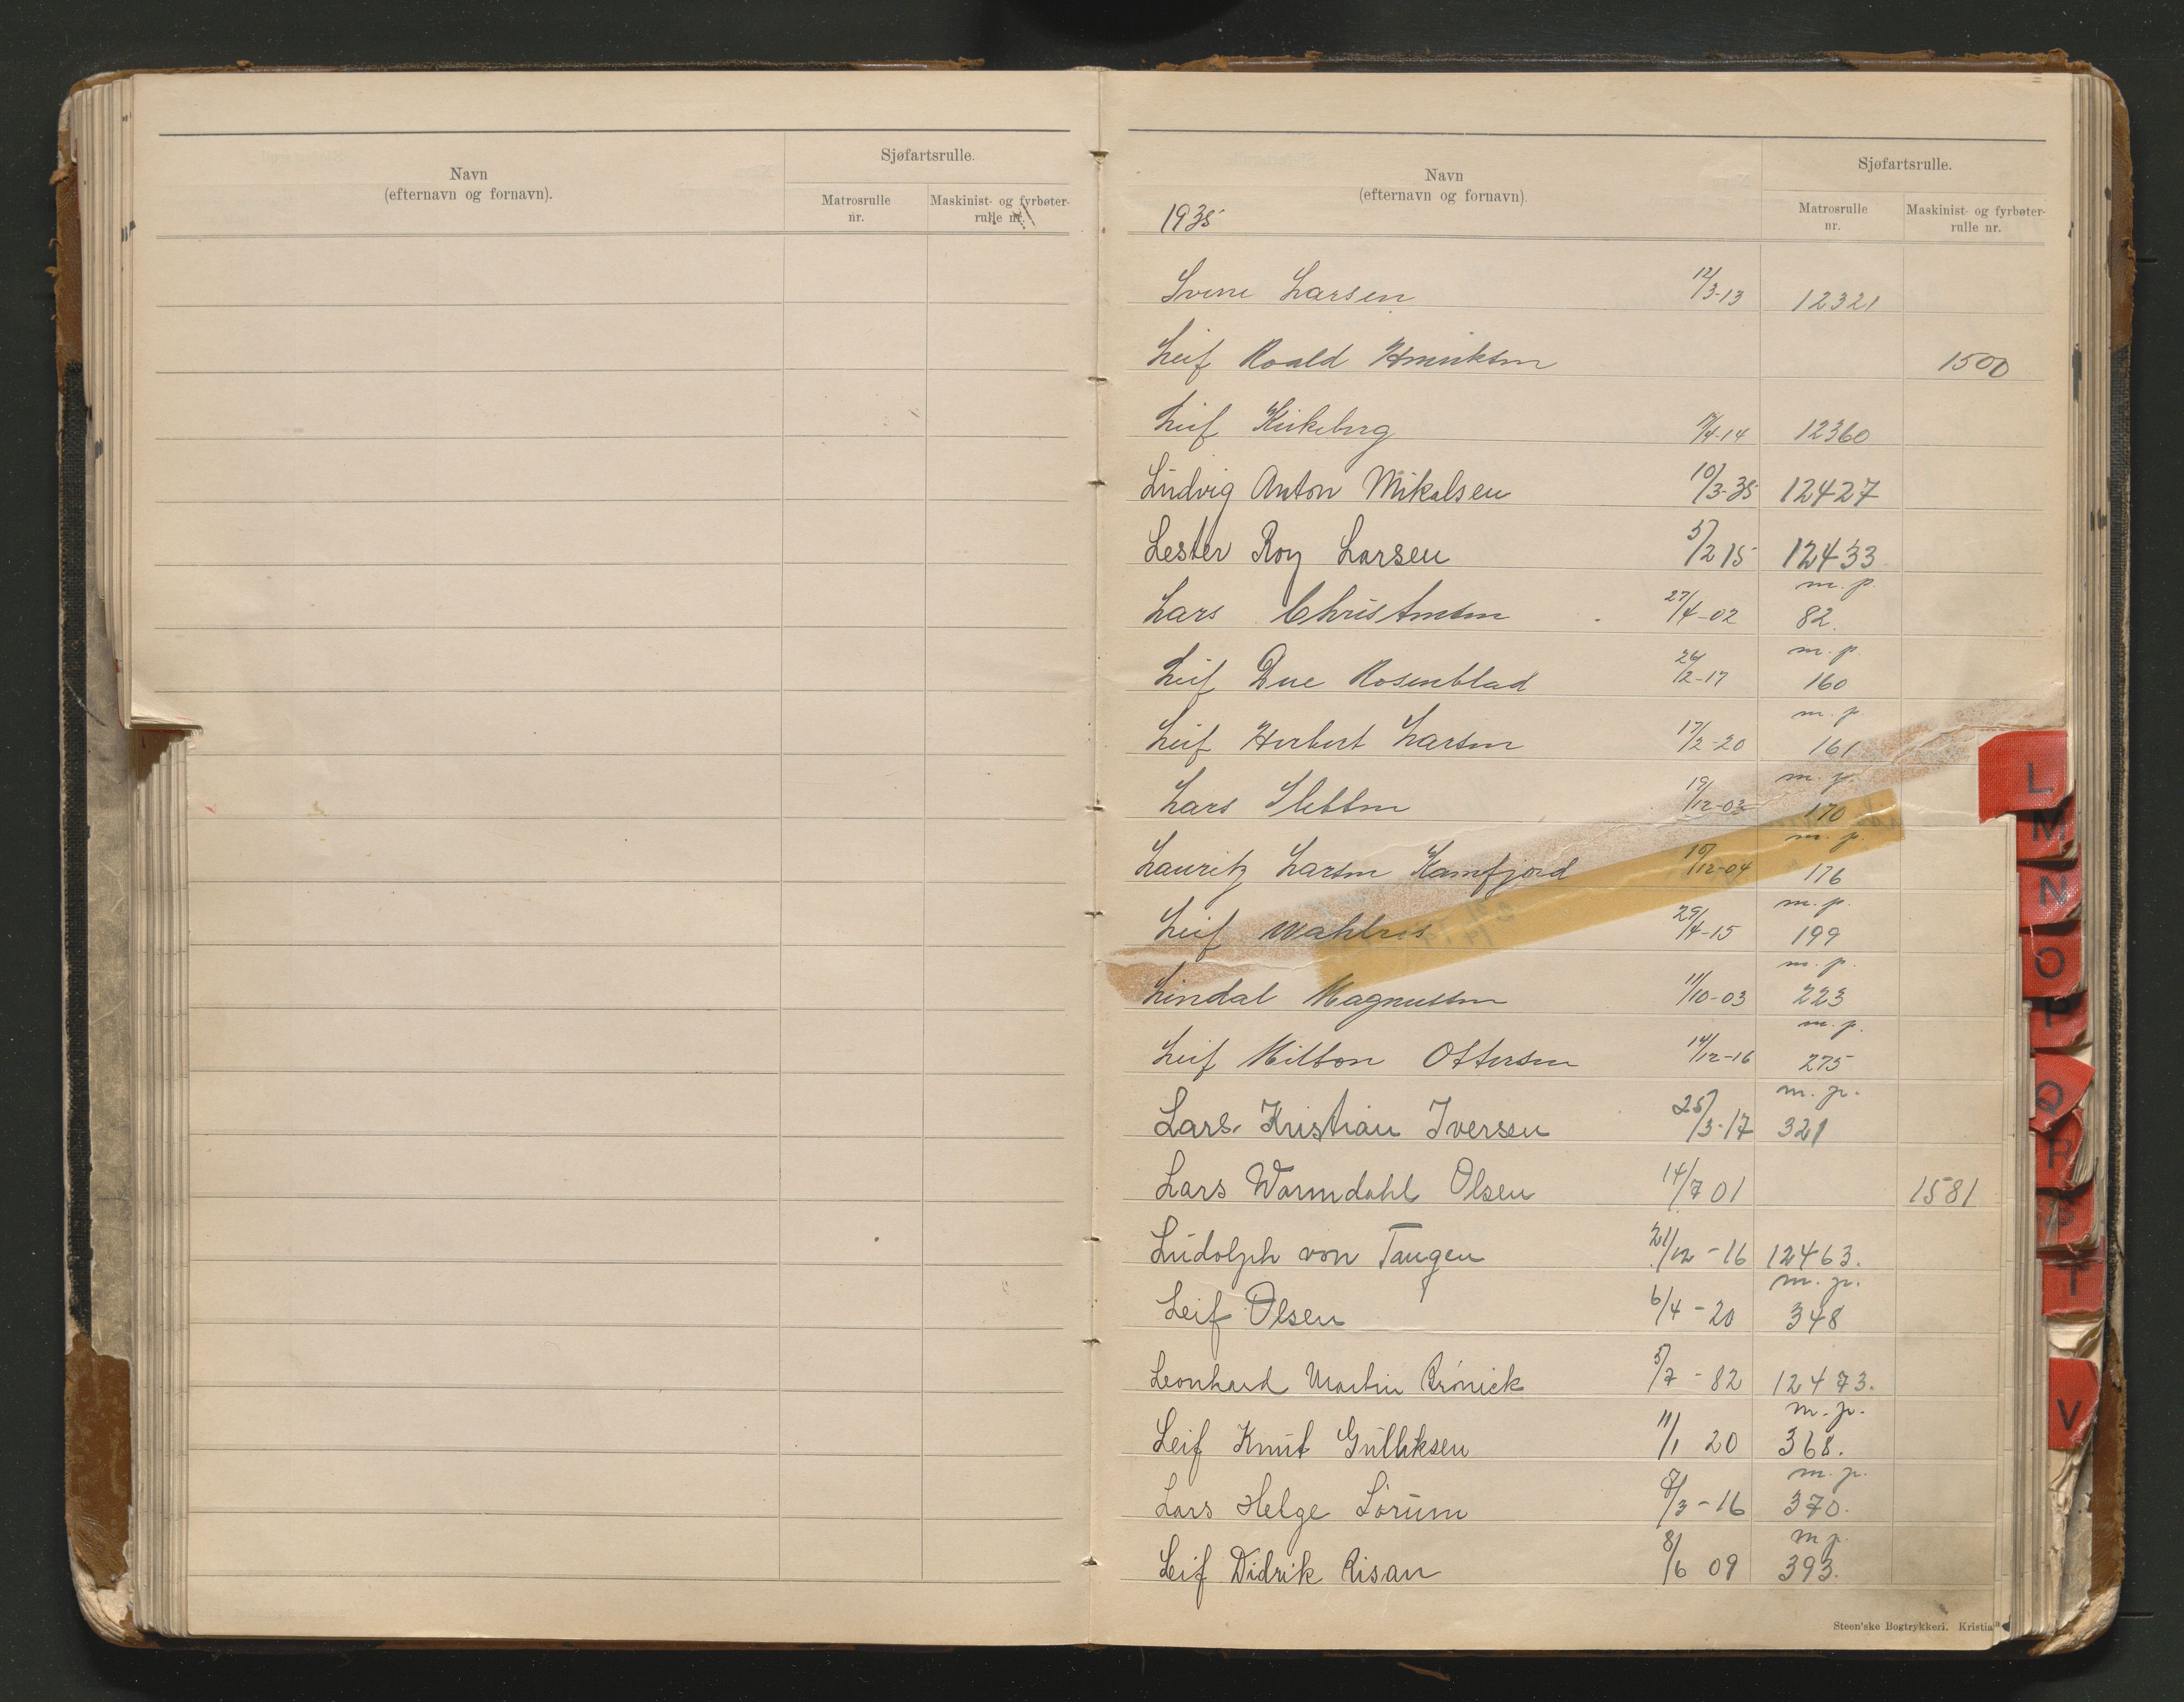 Navn
(efternavn og fornavn).
Sjøfartsrulle.
Matrosrulle
nr.
Maskinist- og fyrbøter-
rulle nr.
Navn
(efternavn og fornavn).
Sjøfartsrulle.
Matrosrulle
nr.
Maskinist- og fyrbøter-
rulle nr.
1935
Larsen 12/3-13 12321
Leif Roald Henriksen 1500
Leif Kirkeberg 7/4-14 12360
Ludvig Anton Mikalsen 10/3-35 12427
Lester Roy Larsen 5/2 15 12433
m.p.
Lars Christensen 27/4-02 82.
m.p.
Leif Due Rosenblad 26/2-17 160
m.p.
Leif Herbert Larsen 17/2-20 161
m.p.
Lars Sletten 19/12-03 170
m.p.
Lauritz Larsen Kamfjord 10/12-04 176
m.p.
Leif 29/4-15 199
m.p.
Lindal Magnussen 11/10-03 223
m.p.
Leif Milton Ottersen 14/12-16 275
m.p.
Lars Kristian Iversen 25/3-17 321
Lars Warmdahl Olsen 14/7 01 1581
Ludolph von Tangen 21/12-16 12463.
m.p.
Leif Olsen 6/4-20 348
Leonhard Martin 5/7-82 12473.
m.p.
Leif Knut Gulliksen 11/1 20 368.
m.p.
Lars Helge Sørum 8/3-16 370.
m.p.
Leif Didrik Risan 8/6 09 393.
Steen'ske Bogtrykkeri. Kristia
L
M
N
O
P
Q
R
S
T
V